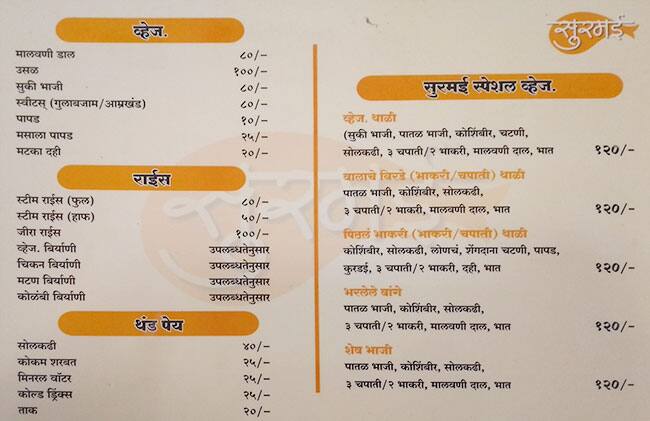 व्हेज.
मालवणी डाल ८०/-
उसळ १००/-
सुकी भाजी ८०/-
स्वीटस् (गुलाबजाम/आम्रखंड) ८०/-
पापड १०/-
मसाला पापड २५/-
मटका दही २०/-
राईस
स्टीम राईस (फुल) ८०/-
स्टीम राईस (हाफ) ५०/-
जीरा राईस १००/-
व्हेज. बिर्याणी उपलब्धतेनुसार
चिकन बिर्याणी उपलब्धतेनुसार
मटण बिर्याणी उपलब्धतेनुसार
कोळंबी बिर्याणी उपलब्धतेनुसार
थंड पेय
सोलकढी ४०/-
कोकम शरबत २५/-
मिनरल वॉटर २५/-
कोल्ड ड्रिंक्स २५/-
ताक २०/-
सुरमई
सुरमई स्पेशल व्हेज.
व्हेज. थाळी
(सुकी भाजी, पातळ भाजी, कोशिंबीर, चटणी,
सोलकढी, ३ चपाती/२ भाकरी, मालवणी दाल, भात १२०/-
वालाचे बिरडे (भाकरी/चपाती) थाळी
पातळ भाजी, कोशिंबीर, सोलकढी,
३ चपाती/२ भाकरी, मालवणी दाल, भात १२०/-
पिठलं भाकरी (भाकरी/चपाती) थाळी
कोशिंबीर, सोलकढी, लोणचं, शेंगदाना चटणी, पापड,
कुरडई, ३ चपाती/२ भाकरी, दही, भात १२०/-
भरलेले वांगे
पातळ भाजी, कोशिंबीर, सोलकढी,
३ चपाती/२ भाकरी, मालवणी दाल, भात १२०/-
शेष भाजी
पातळ भाजी, कोशिंबीर, सोलकढी,
३ चपाती/२ भाकरी, मालवणी दाल, भात १२०/-